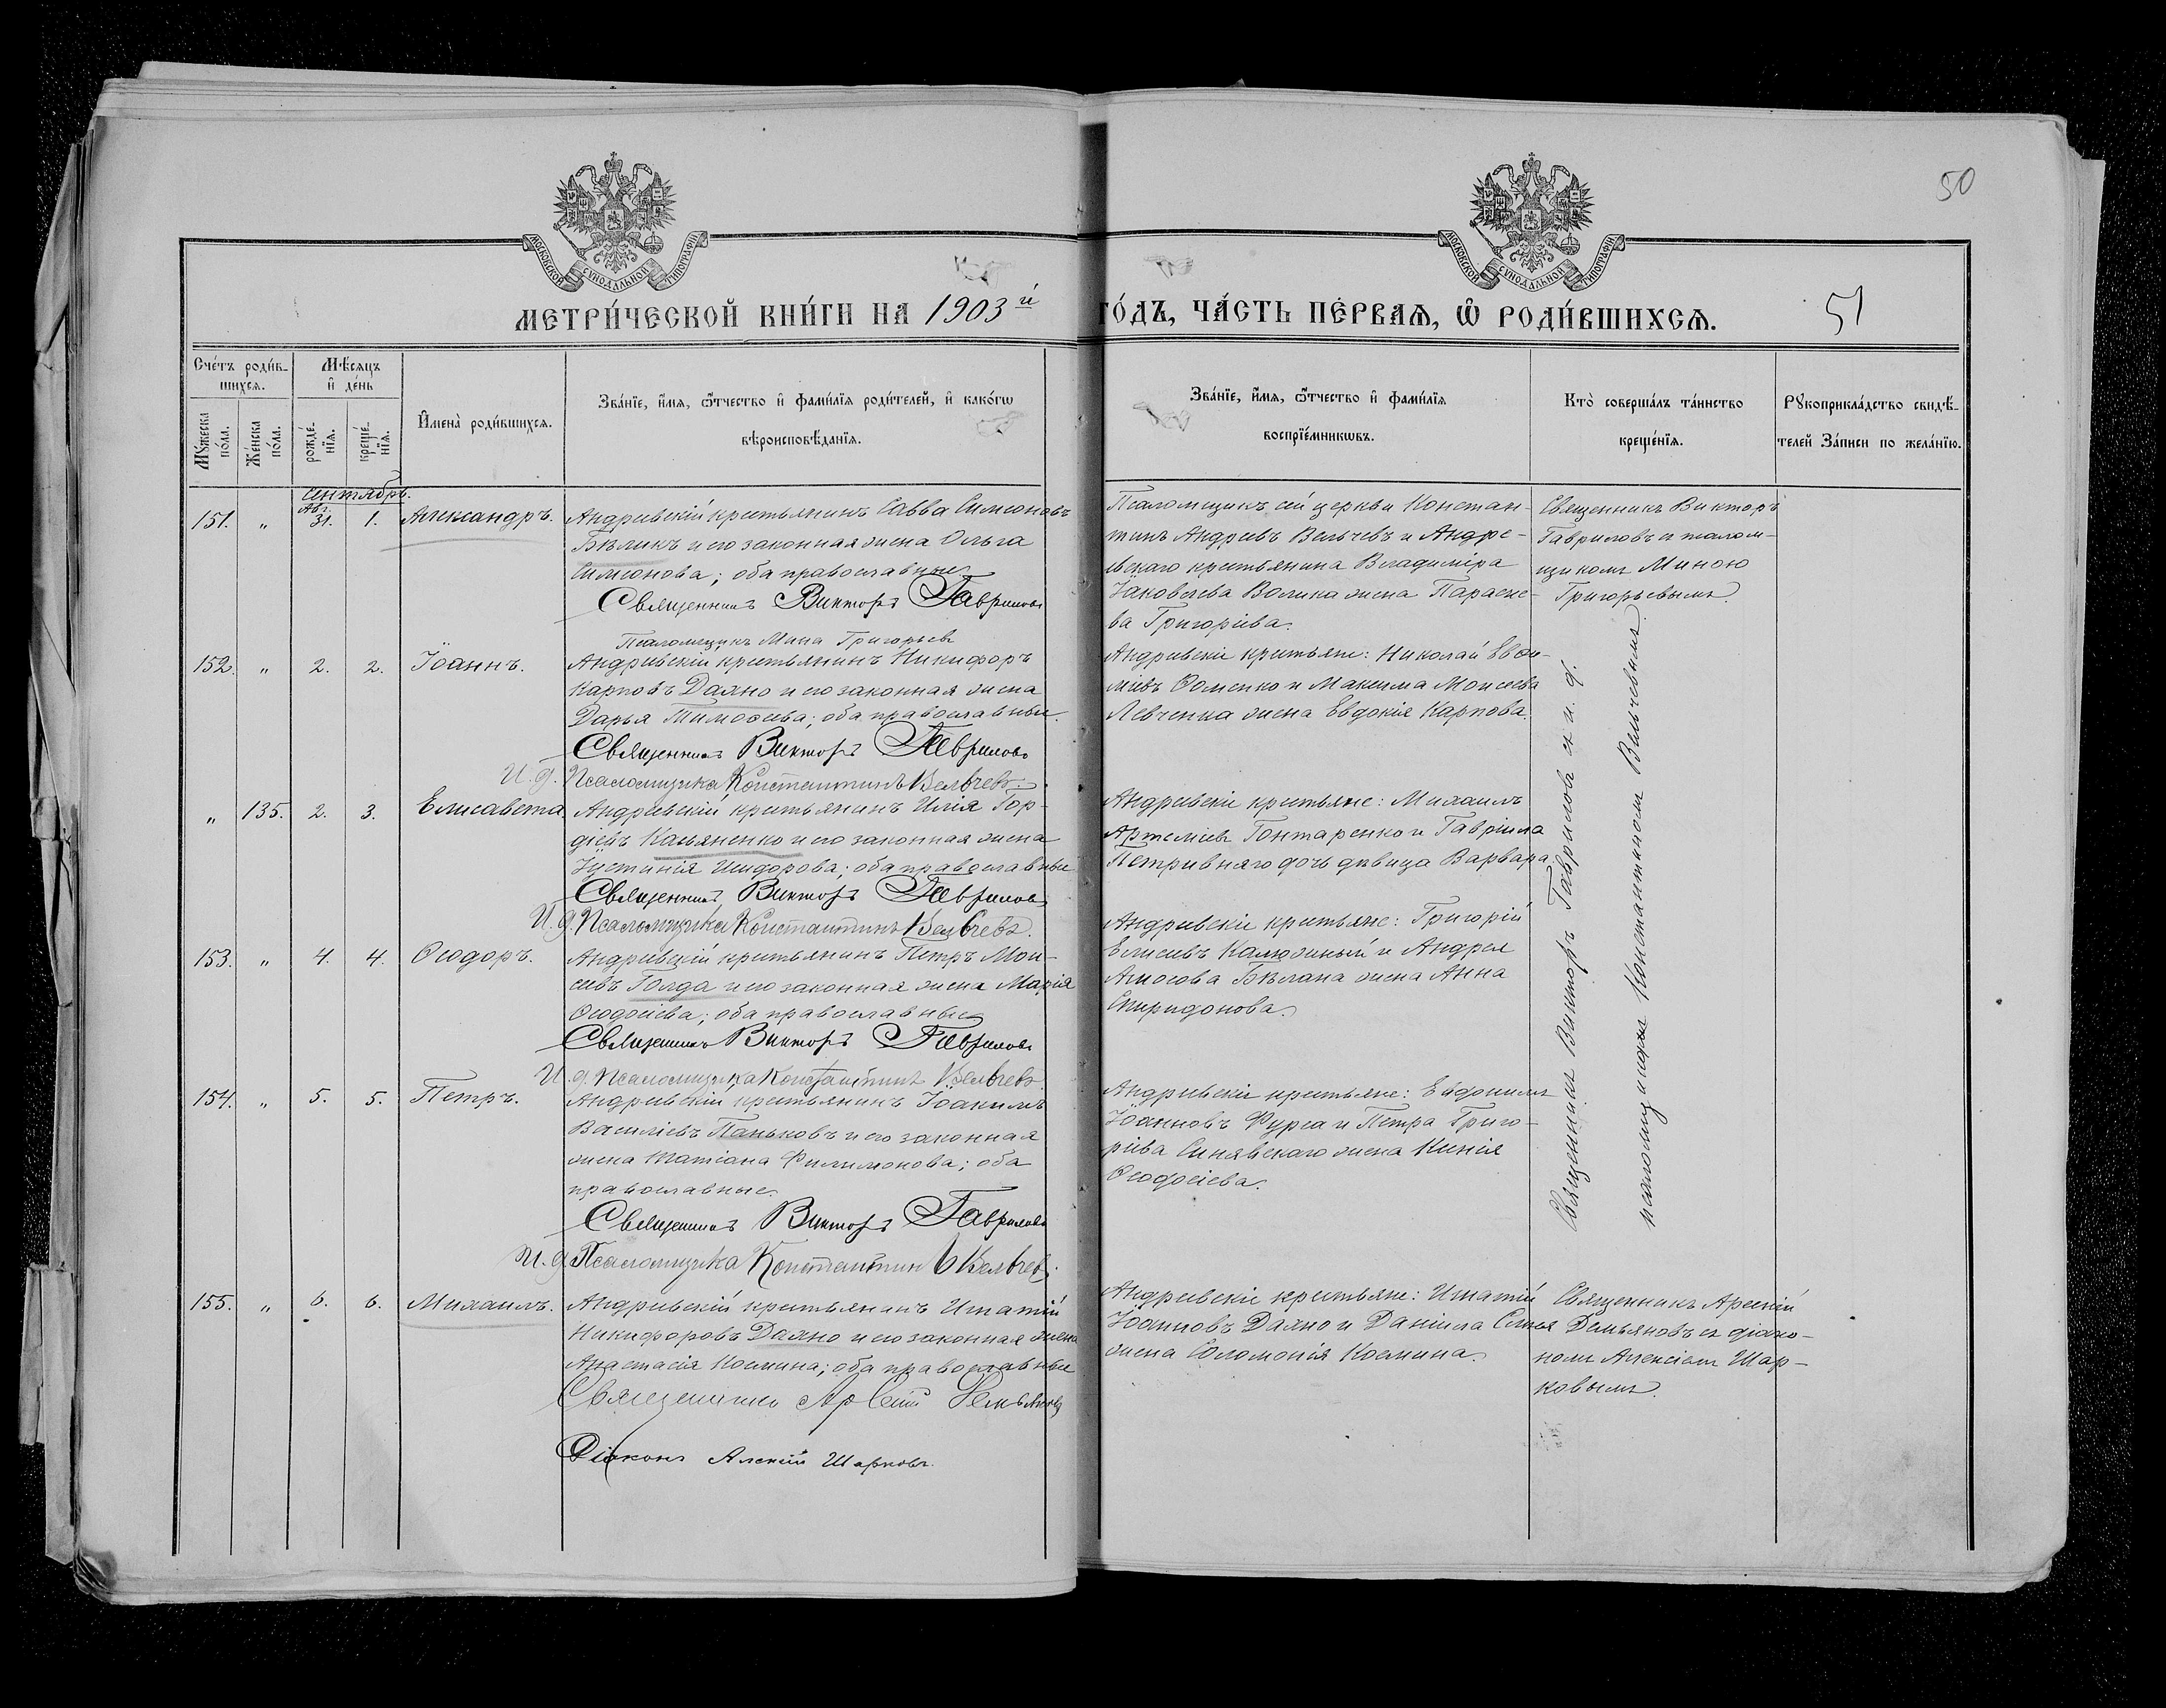 50
МОСКОВСКОЙ СУНОДАЛЬНОЙ ТИПОГРАФІИ
МОСКОВСКОЙ СУНОДАЛЬНОЙ ТИПОГРАФІИ
МЕТРИ́ЧЕСКОЙ КНИ́ГИ НА 1903й ГО́ДЪ, ЧА́СТЬ ПЕ́РВАѦ, Ѡ҆ РОДИ́ВШИХСѦ.
51
Сче́тъ роди́в-
шихсѧ.
Мꙋ́жеска
по́ла.
Же́нска
по́ла.
Мѣ́сѧцъ
и҆ де́нь
рожде́-
нїѧ.
креще́-
нїѧ.
И҆мена̀ роди́вшихсѧ.
Зва́нїе, и҆́мѧ, ѻ҆́тчество и҆ фами́лїѧ роди́телей, и҆ како́гѡ
вѣроисповѣ́данїѧ.
Зва́нїе, и҆́мѧ, ѻ҆́тчество и҆ фами́лїѧ
воспрїе́мникѡвъ.
Кто̀ соверша́лъ та́инство
креще́нїѧ.
Рꙋкоприкла́дство свидѣ́-
телей За́писи по жела́нїю.
Сентябрь.
151. „ Авг. 31. 1. Александръ.
Андреевскій крестьянинъ Савва Симеоновъ
Бѣликъ и его законная жена Ольга
Симеонова; оба православные
Священникъ Викторъ Гавриловъ
Псаломщикъ Мина Григорьевъ
Псаломщикъ сей церкви Констан-
тинъ Андреевъ Вельчевъ и Андре-
евскаго крестьянина Владиміра
Іаковлева Волика жена Параске-
ва Григоріева.
Священникъ Викторъ
Гавриловъ съ псалом-
щикомъ Миною
Григорьевымъ.
152. „ 2. 2. Іоаннъ.
Андреевскій крестьянинъ Никифоръ
Карповъ Даяно и его законная жена
Дарья Тимоѳеева; оба православные.
Священникъ Викторъ Гавриловъ
И. д. Псаломщика Константинъ Вельчевъ
Андреевскіе крестьяне: Николай
Ѳоменко и Максима Моисеева
Левченка жена Евдокія Карпова.
„ 135. 2. 3. Елисавета.
Андреевскій крестьянинъ Илія Гор-
діевъ Касьяненко и его законная жена
Іустинія Исидорова; оба православные
Священникъ Викторъ Гавриловъ
И. д. Псаломщика Константинъ Вельчевъ.
Андреевскіе крестьяне: Михаилъ
Артеміевъ Гонтаренко и Гавріила
Петривняго дочь дѣвица Варвара.
153. „ 4. 4. Ѳеодоръ.
Андреевскій крестьянинъ Петръ Мои-
сеевъ Голда и его законная жена Марія
Ѳеодосіева; оба православные
Священникъ Викторъ Гавриловъ
И. д. Псаломщика Константинъ Вельчевъ.
Андреевскіе крестьяне: Григорій
Елисеевъ Калюжный и Андрея
Амосова Бѣлана жена Анна
Спиридонова.
154. „ 5. 5. Петръ.
Андреевскій крестьянинъ Іоакимъ
Василіевъ Паньковъ и его законная
жена Татіана Филимонова; оба
православные.
Священникъ Викторъ Гавриловъ
И. д. Псаломщика Константинъ Вельчевъ.
Андреевскіе крестьяне: Евдокимъ
Іоанновъ Фурса и Петра Григо-
ріева Синявскаго жена Ксенія
Ѳеодосіева.
Священникъ Викторъ Гавриловъ съ и. д.
псаломщика Константиномъ Вельчевымъ.
155. „ 6. 6. Михаилъ.
Андреевскій крестьянинъ Игнатій
Никифоровъ Даяно и его законная жена
Анастасія Космина; оба православные
Священникъ Арсеній Демьяновъ
Діаконъ Алексій Шарковъ.
Андреевскіе крестьяне: Игнатій
Іоанновъ Даяно и Даніила
жена Соломонія Космина.
Священникъ Арсеній
Демьяновъ съ діако-
номъ Алексіемъ Шар-
ковымъ.